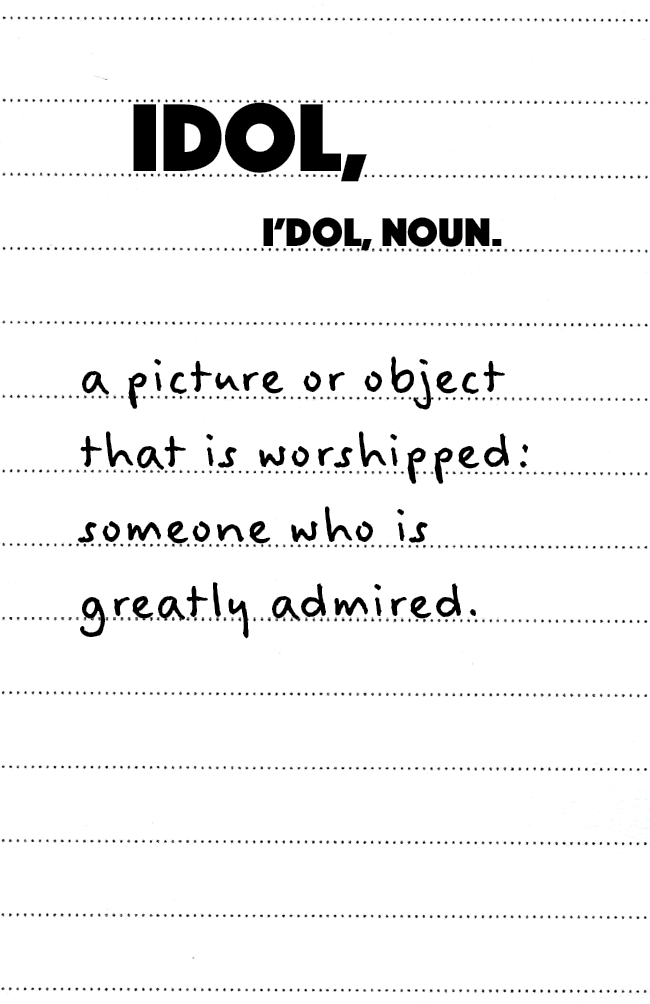 IDOL,
I'DOL, NOUN.
a picture or object
that is worshipped:
someone who is
greatly admired.